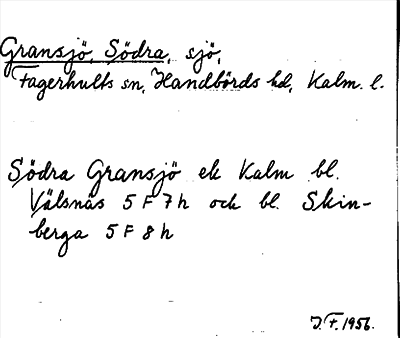 Gransjö, Södra, sjö,
Fagerhults sn, Handbörds hd, Kalm. l.
Södra Gransjö ek Kalm bl.
Välsnäs 5 F 7 h och bl. Skin-
berga 5 F 8 h
J. F. 1956.